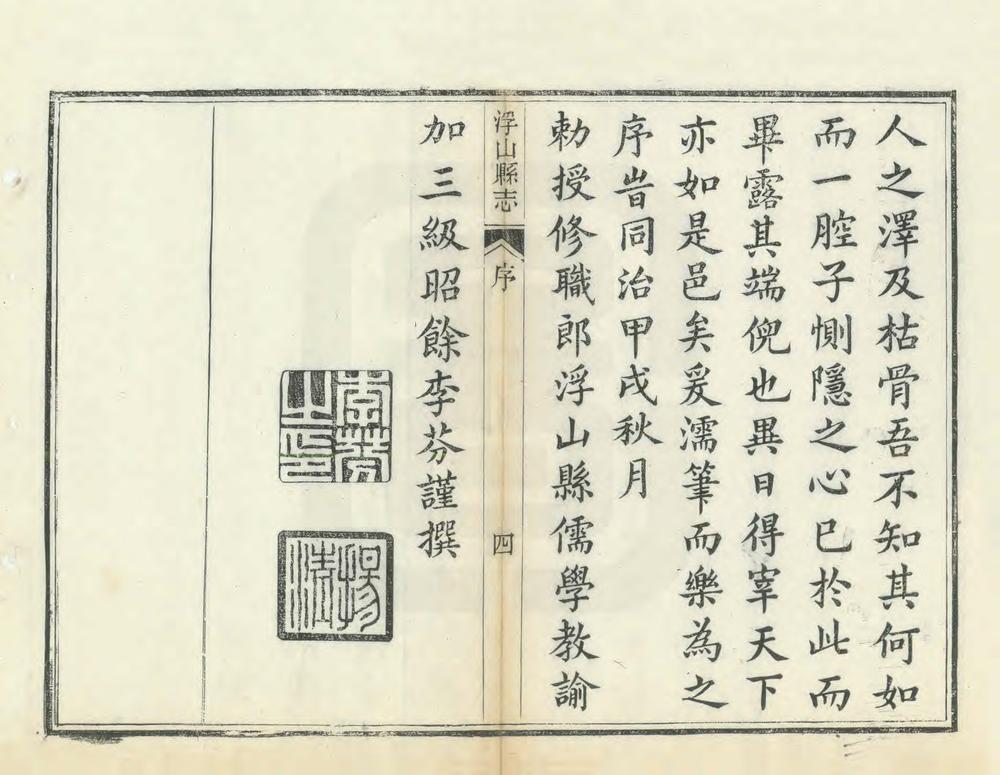 人之澤及枯骨吾不知其何如
而一腔子惻隱之心已於此而
畢露其端倪也異日得宰天下
亦如是邑矣爰濡筆而樂為之
序旹同治甲戌秋月
勅授修職郎浮山縣儒學教諭
浮山縣志 序 四
加三級昭餘李芬謹撰
李芬之印